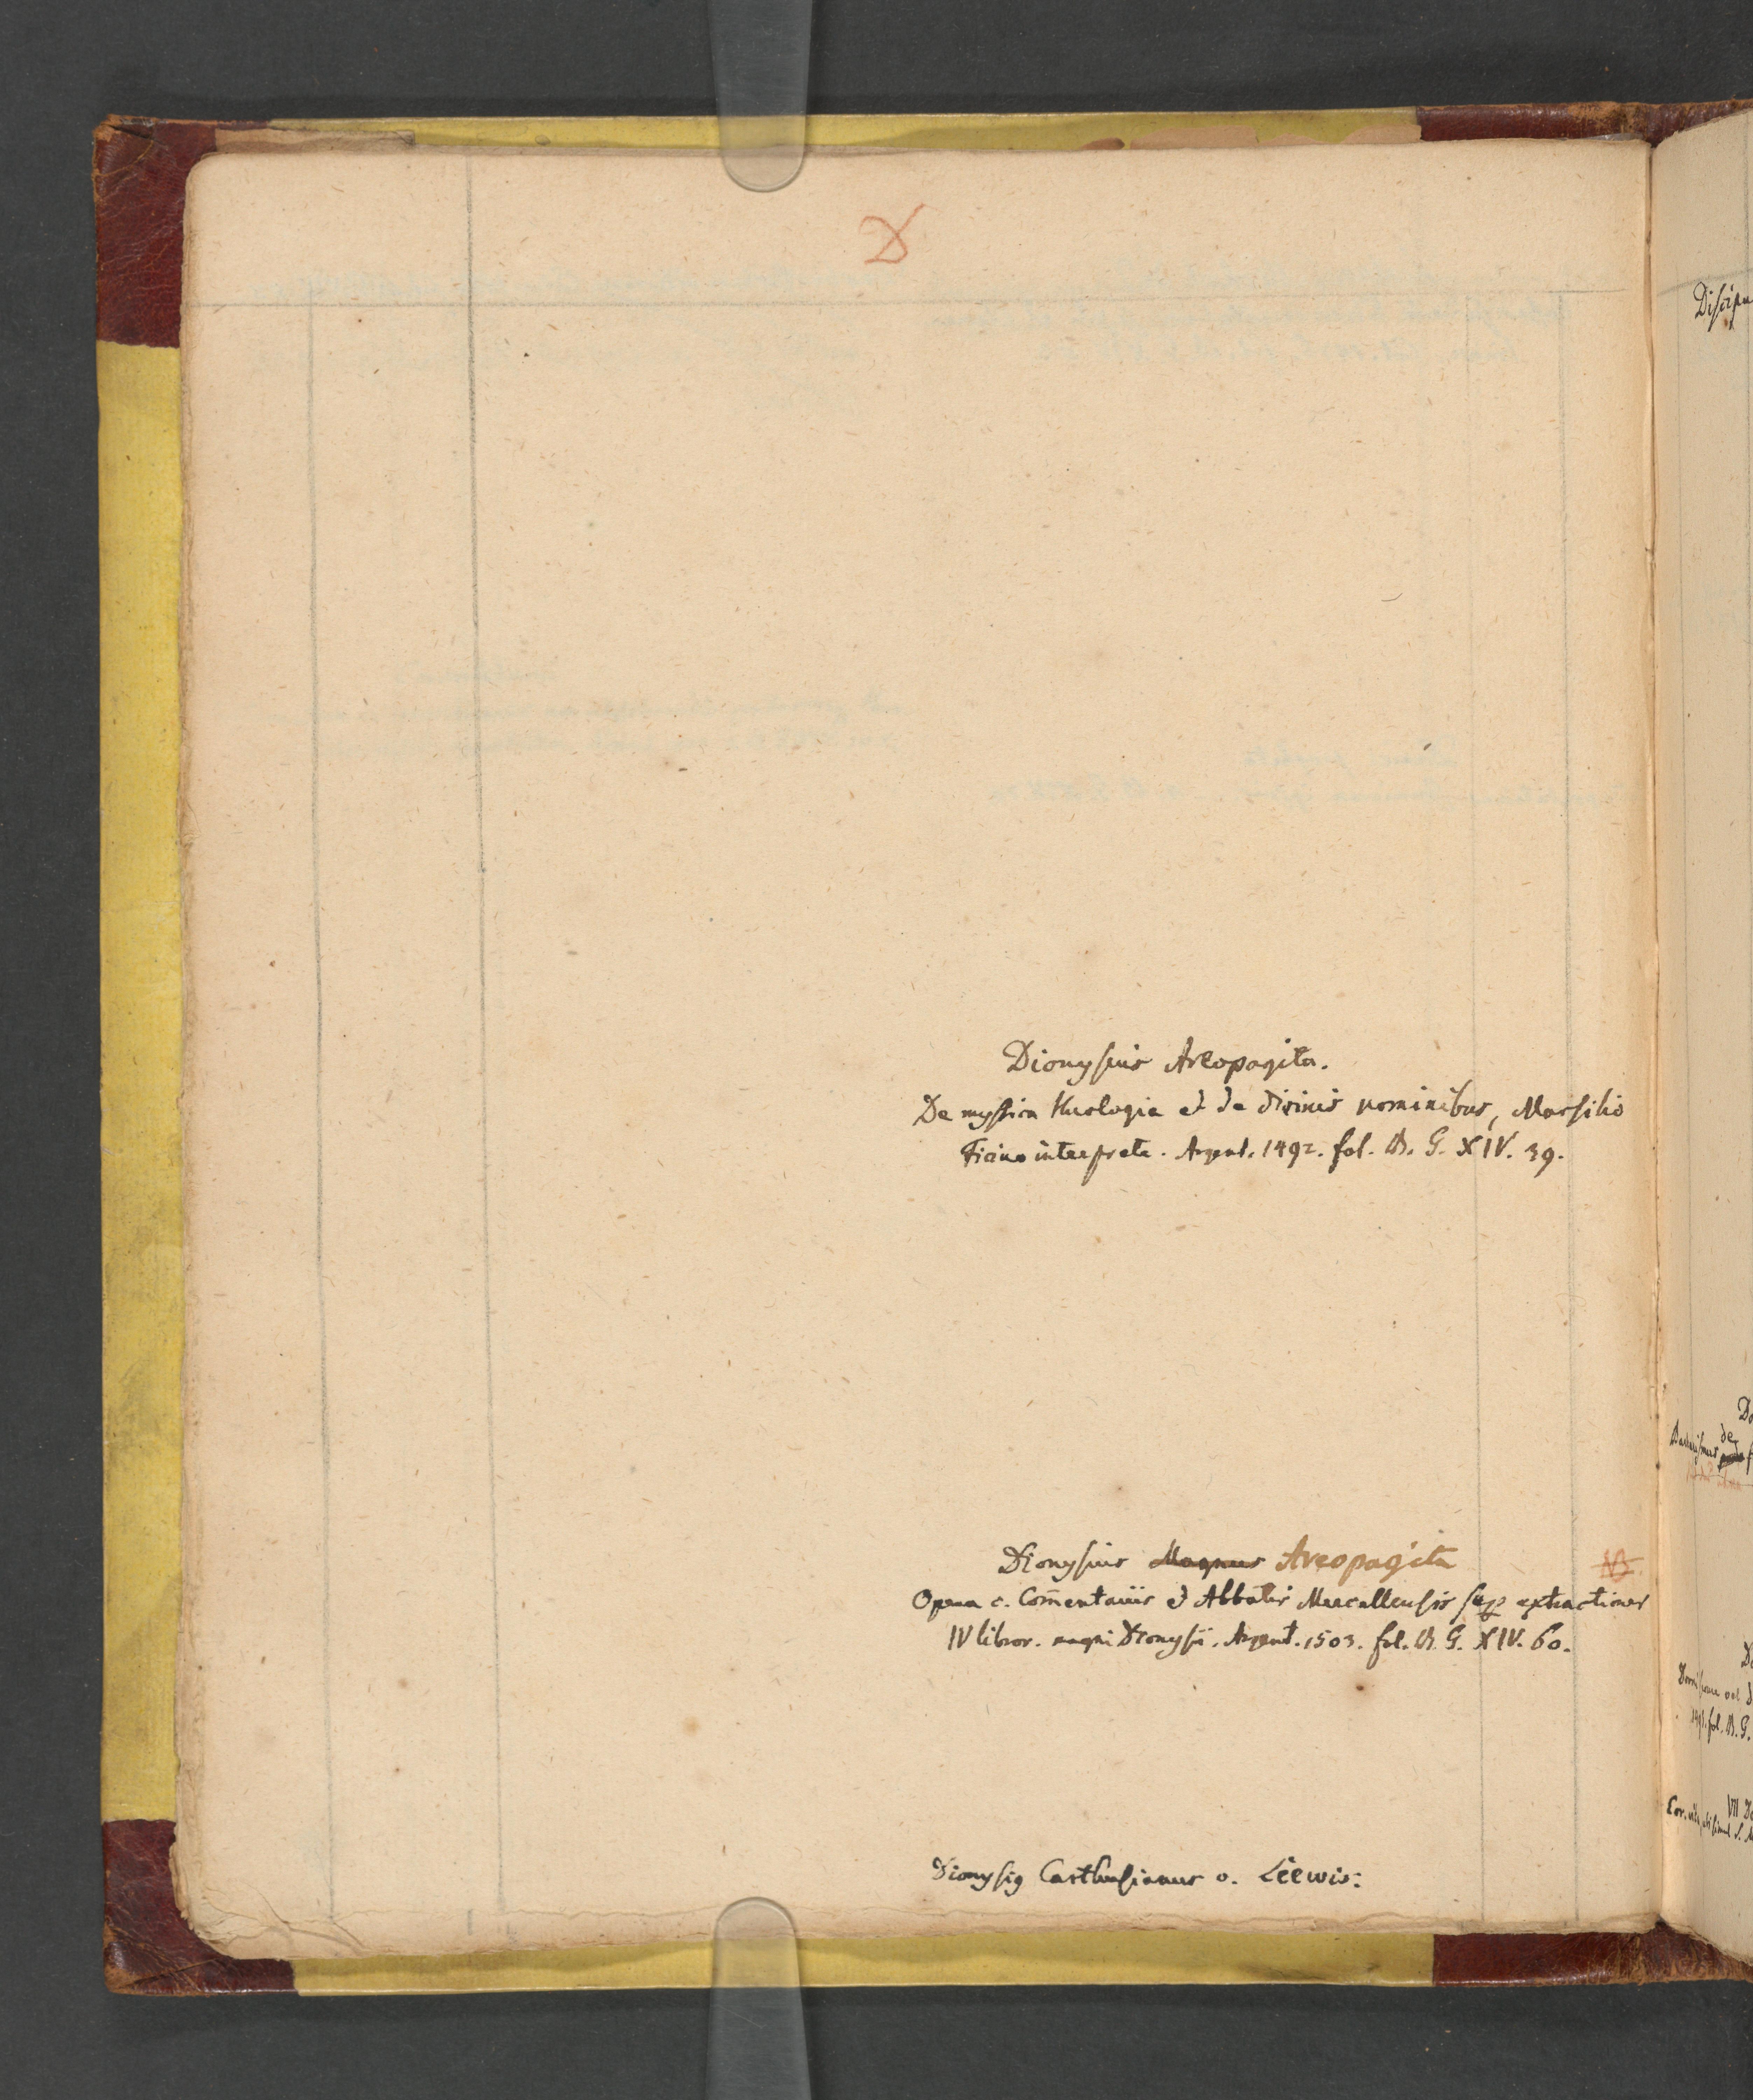 D
Dionysius Areopagita.
De mystica theologia et de divinis nominibus, Marsilio
Ficino interprete. Argent. 1492. fol. B. G. XIV. 39.
Dionysius Magnus Areopagita
NB.
Opera c. Com̄entariis et Abbatis Vercellensis sup extractiones
IV libror. magni Dionysii. Argent. 1503. fol. B. G. XIV. 60.
Dionysiꝰ Carthusianus v. Leewis.
Discipu
Do
de
Do
1491. fol. B. G.
VII Do